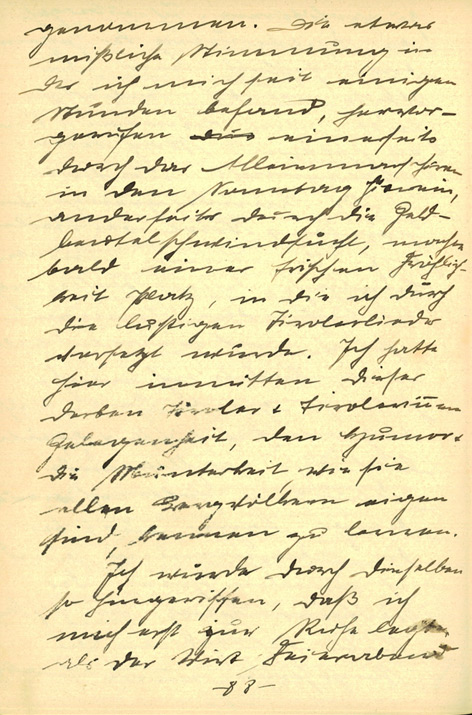 genommen. Die etwas
mißliche Stimmung in
der ich mich seit einigen
Stunden befand, hervor-
gerufen einerseits
durch das
in den hinein,
anderseits durch die Geld-
beutelschwindsucht, machte
bald einer frischen Fröhlich-
keit Platz, in die ich durch
die lustigen Tirolerlieder
versetzt wurde. Ich hatte
hier inmitten dieser
derben Tiroler & Tirolerinnen
Gelegenheit, den Humor &
die Munterkeit, wie sie
allen Bergvölkern eigen
sind, kennen zu lernen.
Ich wurde durch dieselben
so hingerissen, daß ich
mich erst zur Ruhe legte,
als der Wirt Feierabend
-88-